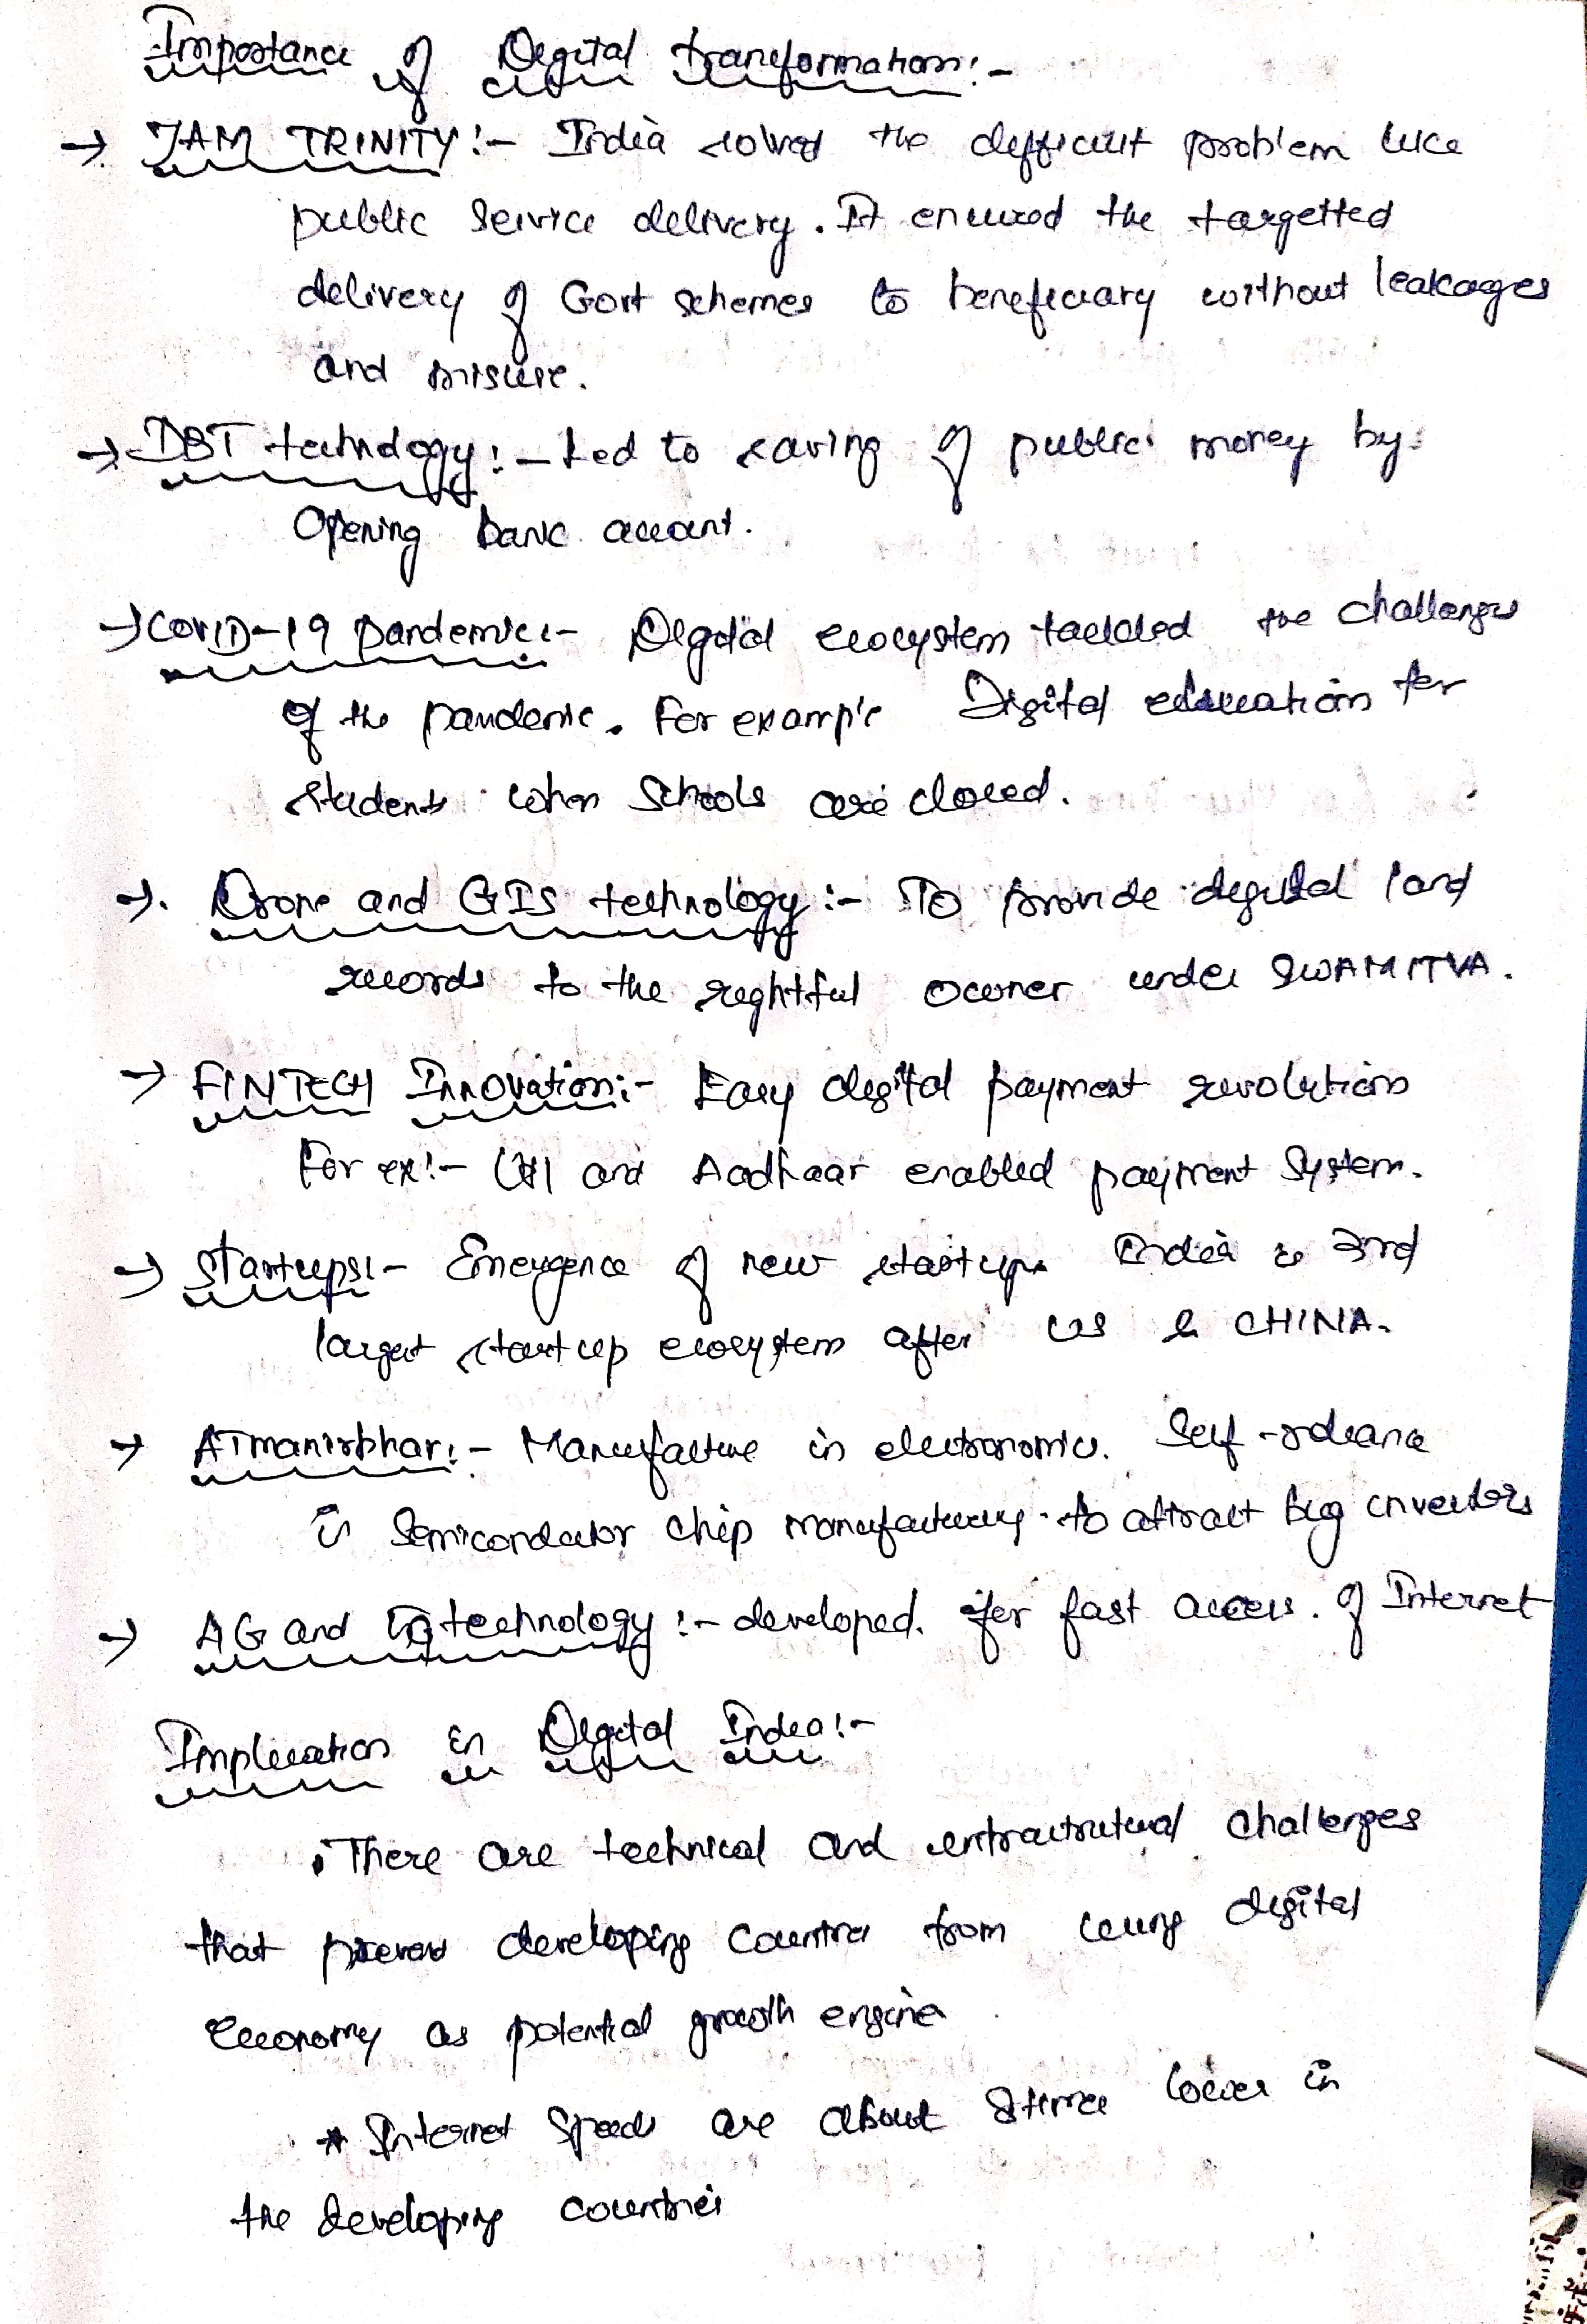 Importance of Digital transformation:-
→ JAM TRINITY:- India solved the difficult problem like
public service delivery. It ensured the targetted
delivery of Govt schemes to beneficiary without leakages
and misuse.
→ DBT technology:- Led to saving of public money by
Opening bank account.
→ COVID-19 pandemic:- Digital ecosystem tackled the challenges
of the pandemic. For example Digital education for
students when Schools are closed.
→ Drone and GIS technology:- To provide digital land
records to the rightful owner under SWAMITVA.
→ FINTECH Innovation:- Easy digital payment revolution
For ex:- UPI and Aadhaar enabled payment System.
→ Startups:- Emergence of new startups India is 3rd
largest startup ecosystem after US & CHINA.
→ ATmanirbhar:- Manufacture in electronomics. Self-reliance
in Semiconductor chip manufacturing to attract big investors
→ 4G and 5G technology:- developed for fast access of Internet
Implication in Digital India:-
• There are technical and infrastructural challenges
that prevent developing countries from using digital
Economy as potential growth engine
* Internet Speeds are about times lower in
the developing countries